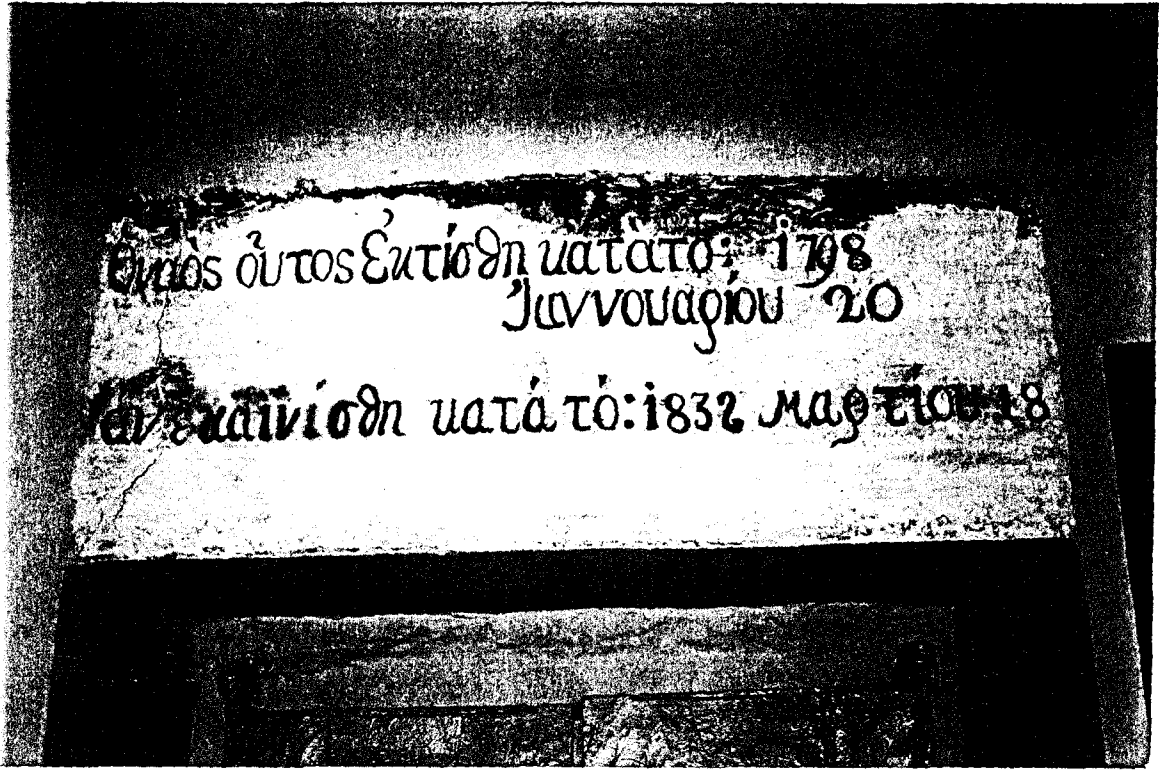 Ὁ ναὸς οὗτος ἐκτίσθη κατὰ το: 1798
Ἰαννουαρίου 20
ἀνεκαινίσθη κατά τό: 1832 Μαρτίου 18